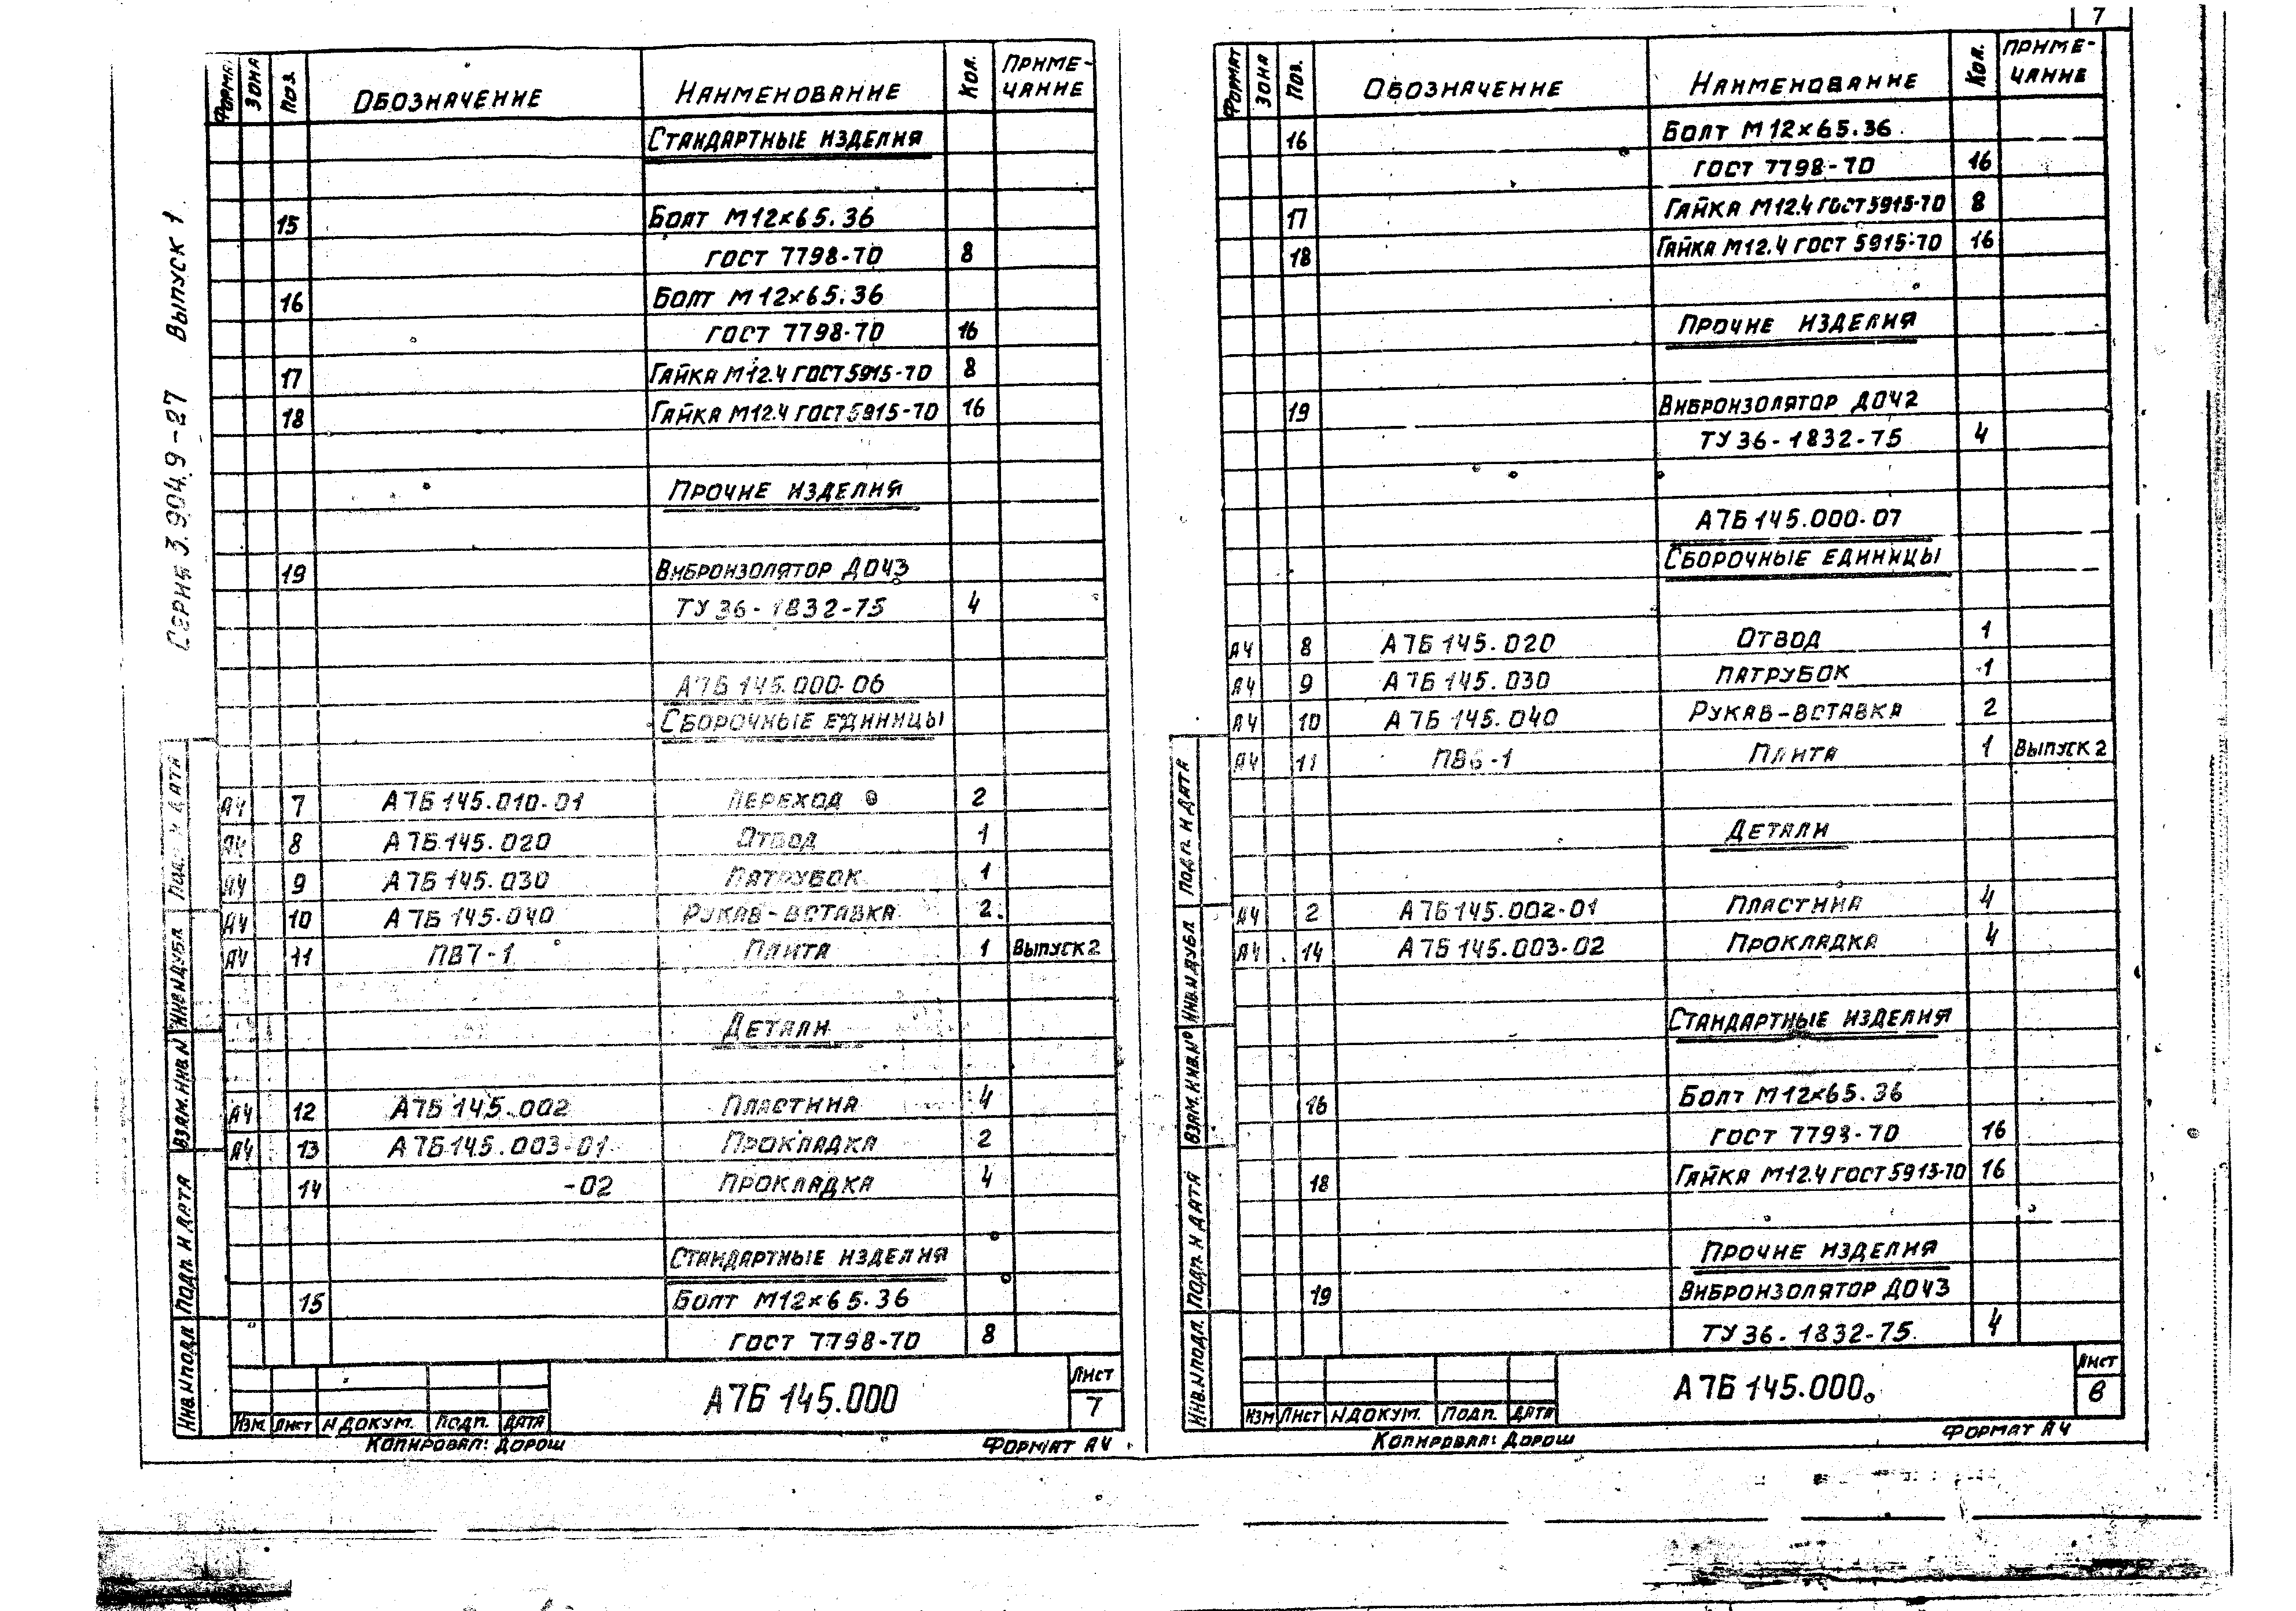 7
Серия 3.904.9-27 Выпуск 1
Формат Зона Поз. Обозначение Наименование Кол. Примечание
Стандартные изделия
15 Болт М12×65.36
ГОСТ 7798-70 8
16 Болт М12×65.36
ГОСТ 7798-70 16
17 Гайка М12.4 ГОСТ 5915-70 8
18 Гайка М12.4 ГОСТ 5915-70 16
Прочие изделия
19 Виброизолятор ДО43
ТУ 36-1832-75 4
А7Б 145.000-06
Сборочные единицы
А4 7 А7Б 145.010-01 Переход 2
А4 8 А7Б 145.020 Отвод 1
А4 9 А7Б 145.030 Патрубок 1
А4 10 А7Б 145.040 Рукав-вставка 2
А4 11 ПВ7-1 Плита 1 Выпуск 2
Детали
А4 12 А7Б 145.002 Пластина 4
А4 13 А7Б 145.003-01 Прокладка 2
14 -02 Прокладка 4
Стандартные изделия
15 Болт М12×65.36
ГОСТ 7798-70 8
Подп. и дата
Инв.N дубл
Взам. инв. N
Подп. и дата
Инв. N подл
Изм Лист N докум. Подп. Дата
А7Б 145.000
Лист
7
Копировал: Дорош
Формат А4
Формат Зона Поз. Обозначение Наименование Кол. Примечание
16 Болт М12×65.36
ГОСТ 7798-70 16
17 Гайка М12.4 ГОСТ 5915-70 8
18 Гайка М12.4 ГОСТ 5915-70 16
Прочие изделия
19 Виброизолятор ДО42
ТУ 36-1832-75 4
А7Б 145.000-07
Сборочные единицы
А4 8 А7Б 145.020 Отвод 1
А4 9 А7Б 145.030 Патрубок 1
А4 10 А7Б 145.040 Рукав-вставка 2
А4 11 ПВ6-1 Плита 1 Выпуск 2
Детали
А4 2 А7Б 145.002-01 Пластина 4
А4 14 А7Б 145.003-02 Прокладка 4
Стандартные изделия
16 Болт М12×65.36
ГОСТ 7798-70 16
18 Гайка М12.4 ГОСТ 5915-70 16
Прочие изделия
19 Виброизолятор ДО43
ТУ 36-1832-75 4
Подп. и дата
Инв.N дубл
Взам. инв. №
Подп. и дата
Инв. N подл.
Изм Лист N докум. Подп. Дата
А7Б 145.000
Лист
8
Копировал: Дорош
Формат А4